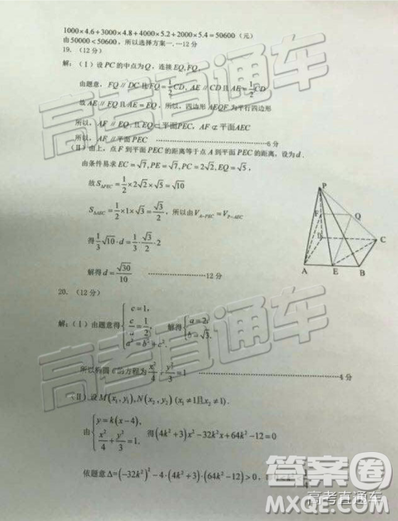 1000×4.6+3000×4.8+4000×5.2+2000×5.4=50600（元）
由50000<50600，所以选择方案一.—12分
19.（12分）
解:（Ⅰ）设PC的中点为Q，连接EQ,FQ,
由题意，FQ∥DC且FQ=1/2CD，AE∥CD且AE=1/2CD
故AE∥FQ且AE=FQ，所以，四边形AEQF为平行四边形
所以，AF∥EQ且EQ⊂平面PEC，AF⊄平面AEC
所以，AF∥平面PEC——6分
（Ⅱ）由上，点F到平面PEC的距离等于点A到平面PEC的距离，设为d.
由条件易求EC=√7,PE=√7,PC=2√2,EQ=√5,
故S△PEC=1/2×2√2×√5=√10
S△AEC=1/2×1×√3=√3/2，所以由V A-PEC=V P-AEC
得1/3√10·d=1/3·√3/2·2
解得d=√30/10——12分
P
F
Q
D
C
A
E
B
20.（12分）
解:（Ⅰ）由题意得 { c=1, c/a=1/2, a²=b²+c². 解得 { a=2, b=√3.
所以椭圆C的方程为x²/4+y²/3=1——4分
（Ⅱ）设M(x₁,y₁),N(x₂,y₂)(x₁≠1且x₂≠1).
由 { y=k(x-4), x²/4+y²/3=1. 得(4k²+3)x²-32k²x+64k²-12=0
依题意Δ=(-32k²)²-4·(4k²+3)·(64k²-12)>0，
高考直通车
高考直通车
答案圈
MXQE.COM
高考直通车